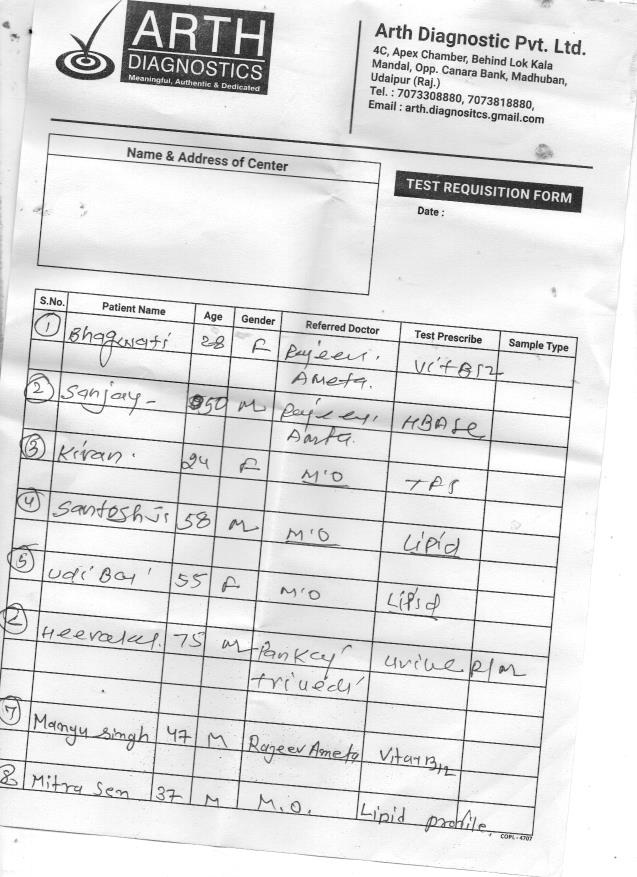 ARTH
DIAGNOSTICS
Meaningful, Authentic & Dedicated
Arth Diagnostic Pvt. Ltd.
4C, Apex Chamber, Behind Lok Kala
Mandal, Opp. Canara Bank, Madhuban,
Udaipur (Raj.)
Tel. : 7073308880, 7073818880,
Email : arth.diagnositcs.gmail.com
Name & Address of Center
TEST REQUISITION FORM
Date :
S.No. Patient Name Age Gender Referred Doctor Test Prescribe Sample Type
1 Bhagwati 28 F Rajeev. Vit B12
Ameta.
2 Sanjay - 50 M Rajeev. HBA1c
Ameta.
3 Kiran. 24 F M'O TFS
4 Santosh Ji 58 M M'O Lipid
5 Udi Bai 55 F M'O Lipid
Heeralal. 75 M Pankaj Urine R/M
Trivedi
7 Mangu Singh 47 M Rajeev Ameta Vitat B12
8 Mitra Sen 37 M M.O. Lipid profile.
COPL - 4707